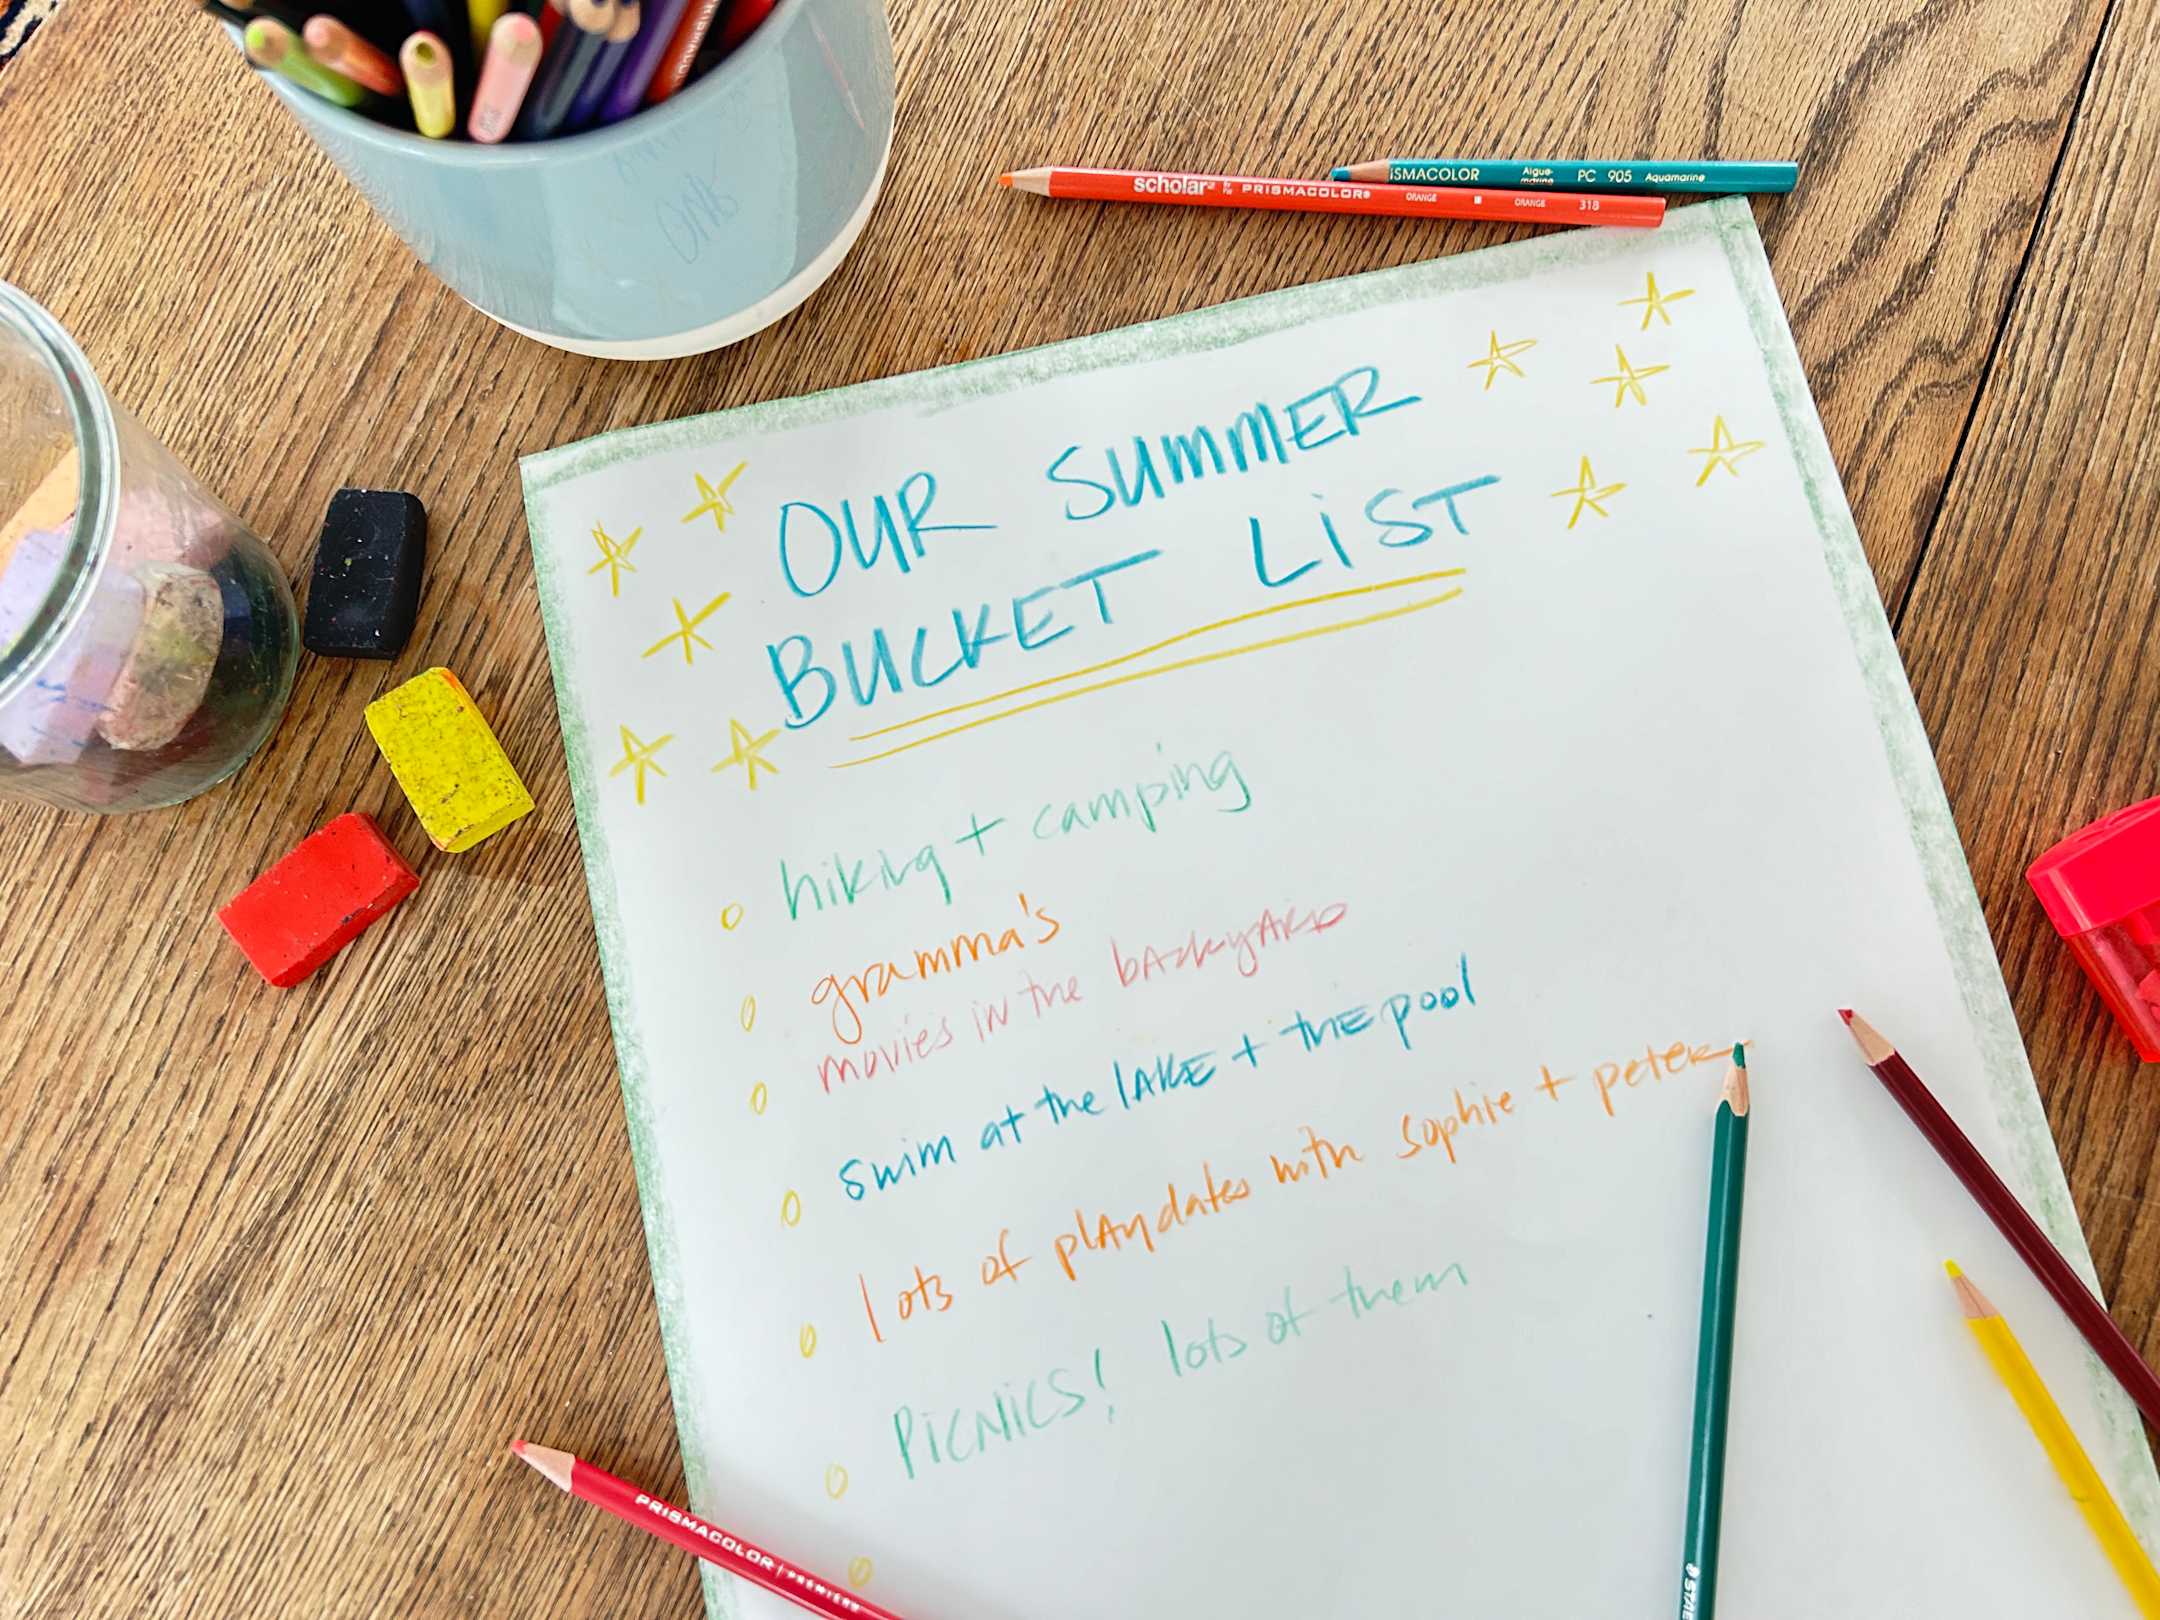 scholar PRISMACOLOR® ORANGE ORANGE 318
ISMACOLOR Aigue-marine PC 905 Aquamarine
OUR SUMMER
BUCKET LiST
hiking + camping
gramma's
movies in the backyard
swim at the lake + the pool
lots of playdates with sophie + peter
PiCNiCS! lots of them
PRISMACOLOR | PREMIER®